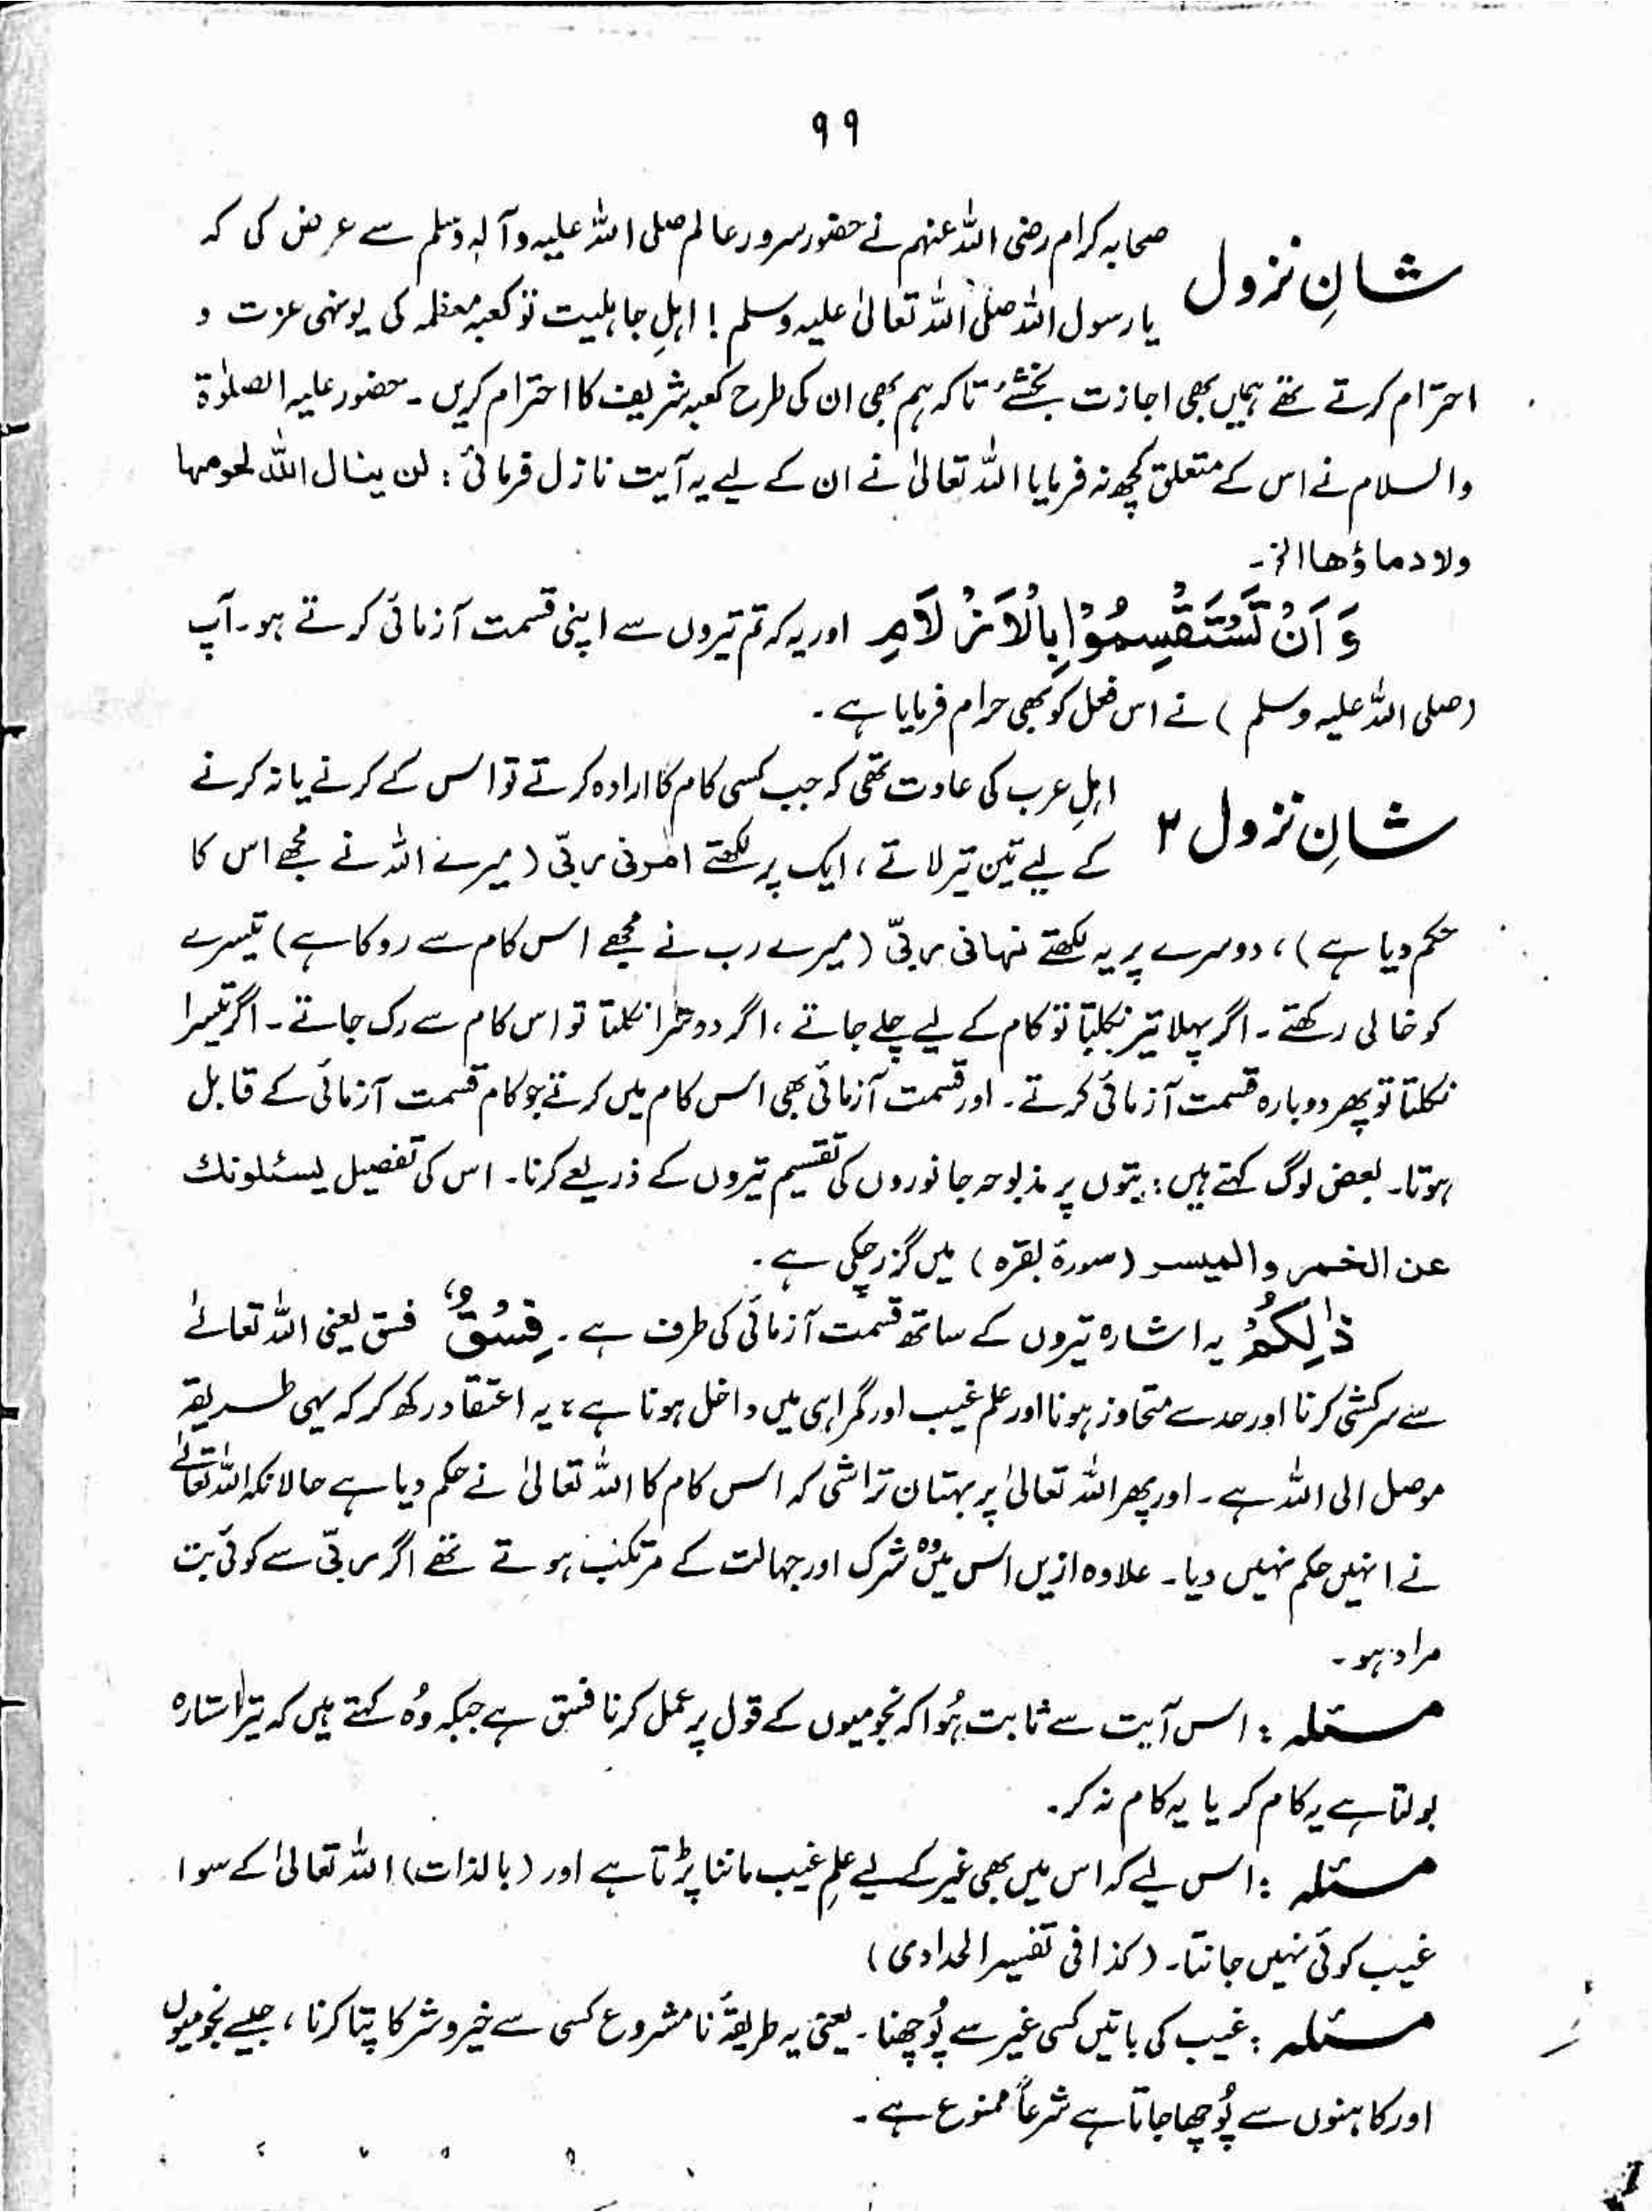 ۹۹
شانِ نزول
صحابہ کرام رضی اللہ عنہم نے حضور سرور عالم صلی اللہ علیہ وآلہٖ وسلم سے عرض کی کہ
یا رسول اللہ صلی اللہ تعالیٰ علیہ وسلم ! اہلِ جاہلیت تو کعبہ معظمہ کی یونہی عزت و
احترام کرتے تھے ہمیں بھی اجازت بخشئے تاکہ ہم بھی ان کی طرح کعبہ شریف کا احترام کریں ۔ حضور علیہ الصلوٰۃ
والسلام نے اس کے متعلق کچھ نہ فرمایا اللہ تعالیٰ نے ان کے لیے یہ آیت نازل فرمائی : لن ینال اللہ لحومہا
ولا دماؤھا الخ ۔
وَ اَنْ تَسْتَقْسِمُوْا بِالْاَزْلَامِ اور یہ کہ تم تیروں سے اپنی قسمت آزمائی کرتے ہو ۔ آپ
(صلی اللہ علیہ وسلم ) نے اس فعل کو بھی حرام فرمایا ہے ۔
شانِ نزول ۲
اہلِ عرب کی عادت تھی کہ جب کسی کام کا ارادہ کرتے تو اس کے کرنے یا نہ کرنے
کے لیے تین تیر لاتے ، ایک پر لکھتے امرنی ربّی (میرے اللہ نے مجھے اس کا
حکم دیا ہے ) ، دوسرے پر یہ لکھتے نہانی ربّی (میرے رب نے مجھے اس کام سے روکا ہے) تیسرے
کو خالی رکھتے ۔ اگر پہلا تیر نکلتا تو کام کے لیے چلے جاتے ، اگر دوسرا نکلتا تو اس کام سے رک جاتے ۔ اگر تیسرا
نکلتا تو پھر دوبارہ قسمت آزمائی کرتے ۔ اور قسمت آزمائی بھی اس کام میں کرتے جو کام قسمت آزمائی کے قابل
ہوتا ۔ بعض لوگ کہتے ہیں : بتوں پر مذبوحہ جانوروں کی تقسیم تیروں کے ذریعے کرنا ۔ اس کی تفصیل یسئلونك
عن الخمر والمیسر (سورۃ بقرہ ) میں گزر چکی ہے ۔
ذٰلِکُمْ یہ اشارہ تیروں کے ساتھ قسمت آزمائی کی طرف ہے ۔ فِسْقٌ فسق یعنی اللہ تعالےٰ
سے سرکشی کرنا اور حد سے متجاوز ہونا اور علم غیب اور گمراہی میں داخل ہونا ہے ، یہ اعتقاد رکھ کر کہ یہی طریقہ
موصل الی اللہ ہے ۔ اور پھر اللہ تعالیٰ پر بہتان تراشی کہ اس کام کا اللہ تعالیٰ نے حکم دیا ہے حالانکہ اللہ تعالےٰ
نے انہیں حکم نہیں دیا ۔ علاوہ ازیں اس میں وہ شرک اور جہالت کے مرتکب ہوتے تھے اگر ربّی سے کوئی بت
مراد ہو ۔
مسئلہ : اس آیت سے ثابت ہُوا کہ نجومیوں کے قول پر عمل کرنا فسق ہے جبکہ وُہ کہتے ہیں کہ تیرا ستارہ
بولتا ہے یہ کام کر یا یہ کام نہ کر ۔
مسئلہ : اس لیے کہ اس میں بھی غیر کے لیے علمِ غیب ماننا پڑتا ہے اور (بالذات) اللہ تعالیٰ کے سوا
غیب کوئی نہیں جانتا ۔ (کذا فی تفسیر الحدادی )
مسئلہ : غیب کی باتیں کسی غیر سے پُوچھنا ۔ یعنی یہ طریقۂ نامشروع کسی سے خیر و شر کا پتا کرنا ، جیسے نجومیوں
اور کاہنوں سے پُوچھا جاتا ہے شرعاً ممنوع ہے ۔